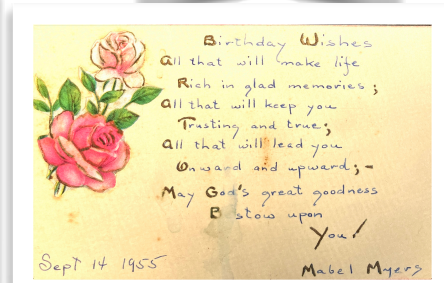 Birthday Wishes
All that will make life
Rich in glad memories;
All that will keep you
Trusting and true;
All that will lead you
Onward and upward;-
May God's great goodness
B stow upon
You!
Sept 14 1955
Mabel Myers